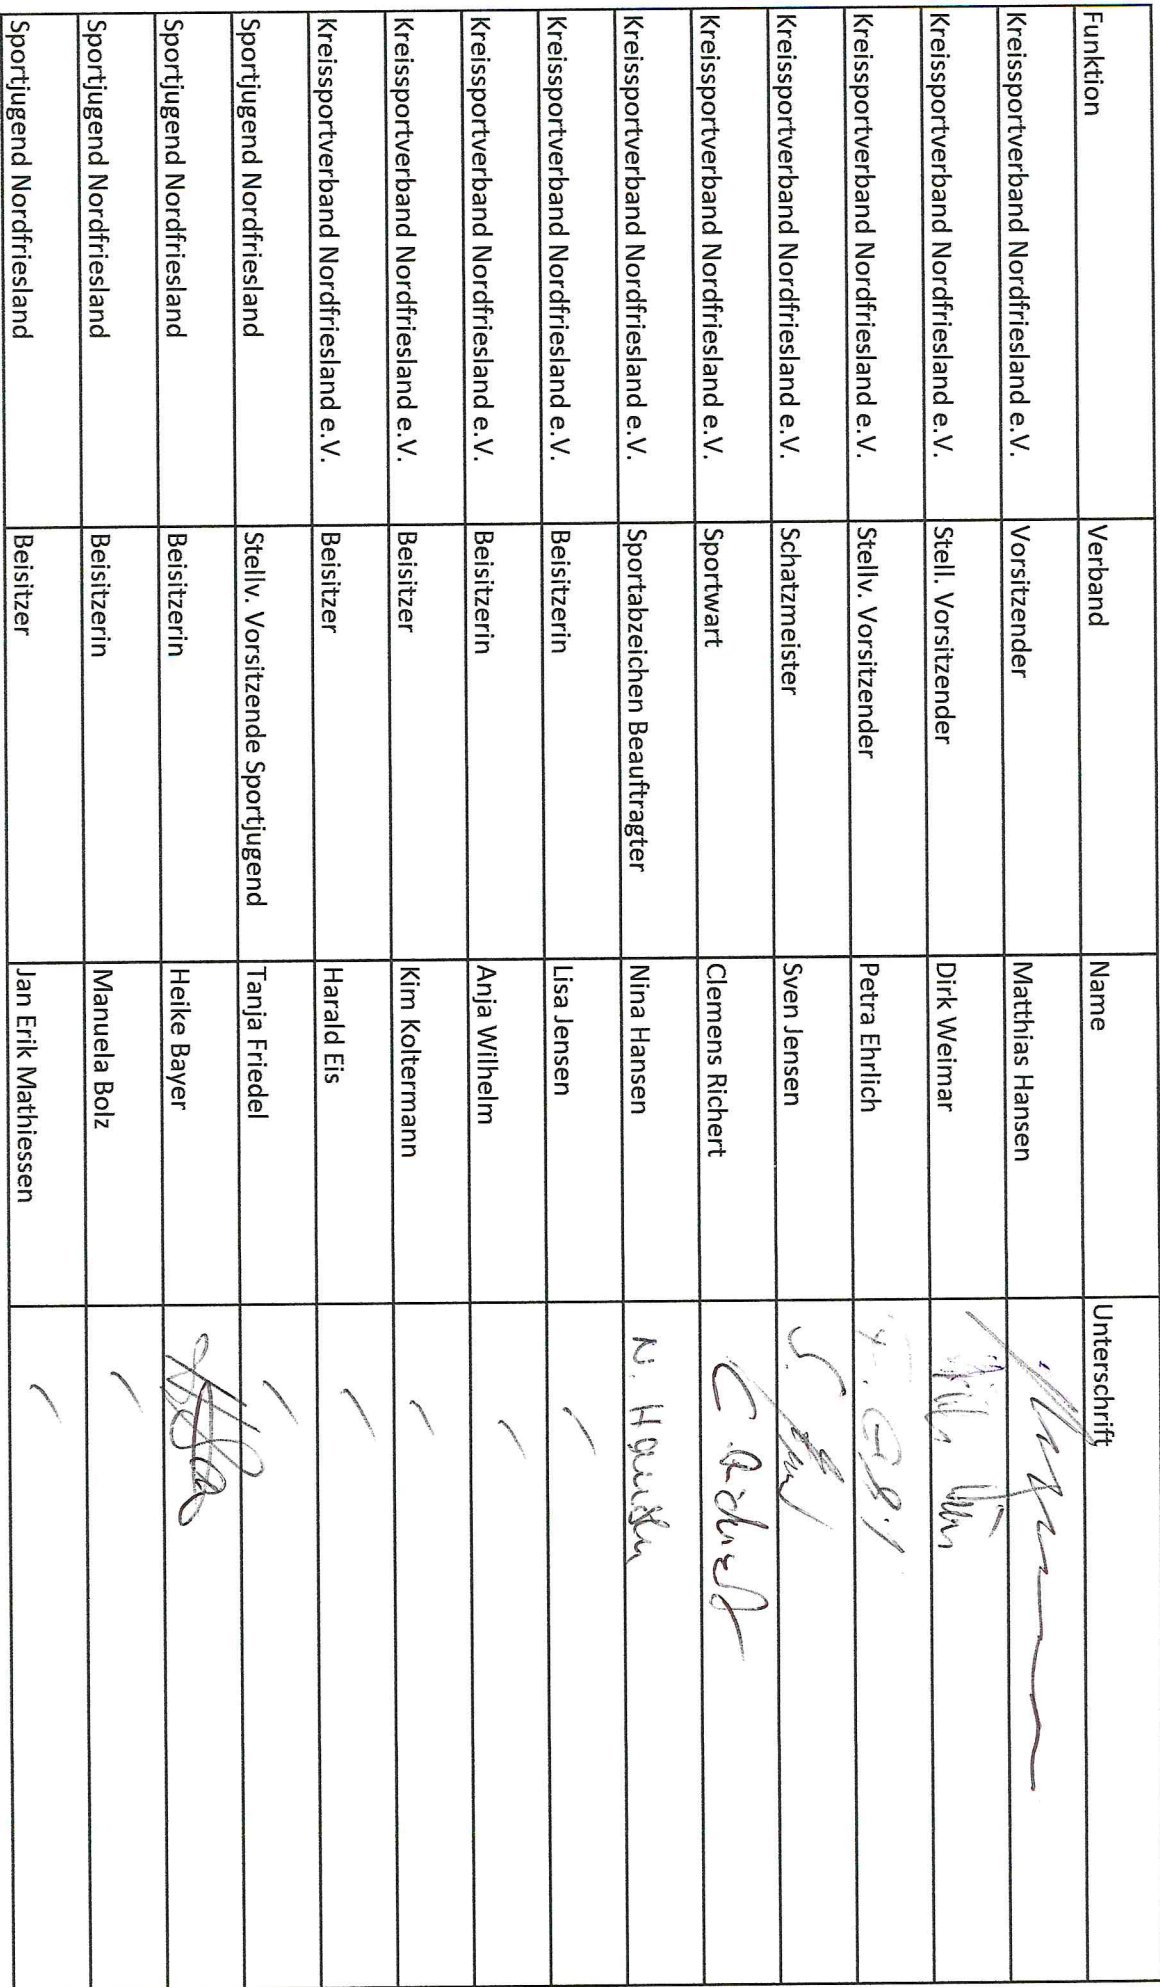 Funktion Verband Name Unterschrift
Kreissportverband Nordfriesland e.V. Vorsitzender Matthias Hansen
Kreissportverband Nordfriesland e.V. Stell. Vorsitzender Dirk Weimar
Kreissportverband Nordfriesland e.V. Stellv. Vorsitzender Petra Ehrlich
Kreissportverband Nordfriesland e.V. Schatzmeister Sven Jensen
Kreissportverband Nordfriesland e.V. Sportwart Clemens Richert
Kreissportverband Nordfriesland e.V. Sportabzeichen Beauftragter Nina Hansen N. Hansen
Kreissportverband Nordfriesland e.V. Beisitzerin Lisa Jensen
Kreissportverband Nordfriesland e.V. Beisitzerin Anja Wilhelm
Kreissportverband Nordfriesland e.V. Beisitzer Kim Koltermann
Kreissportverband Nordfriesland e.V. Beisitzer Harald Eis
Sportjugend Nordfriesland Stellv. Vorsitzende Sportjugend Tanja Friedel
Sportjugend Nordfriesland Beisitzerin Heike Bayer
Sportjugend Nordfriesland Beisitzerin Manuela Bolz
Sportjugend Nordfriesland Beisitzer Jan Erik Mathiessen